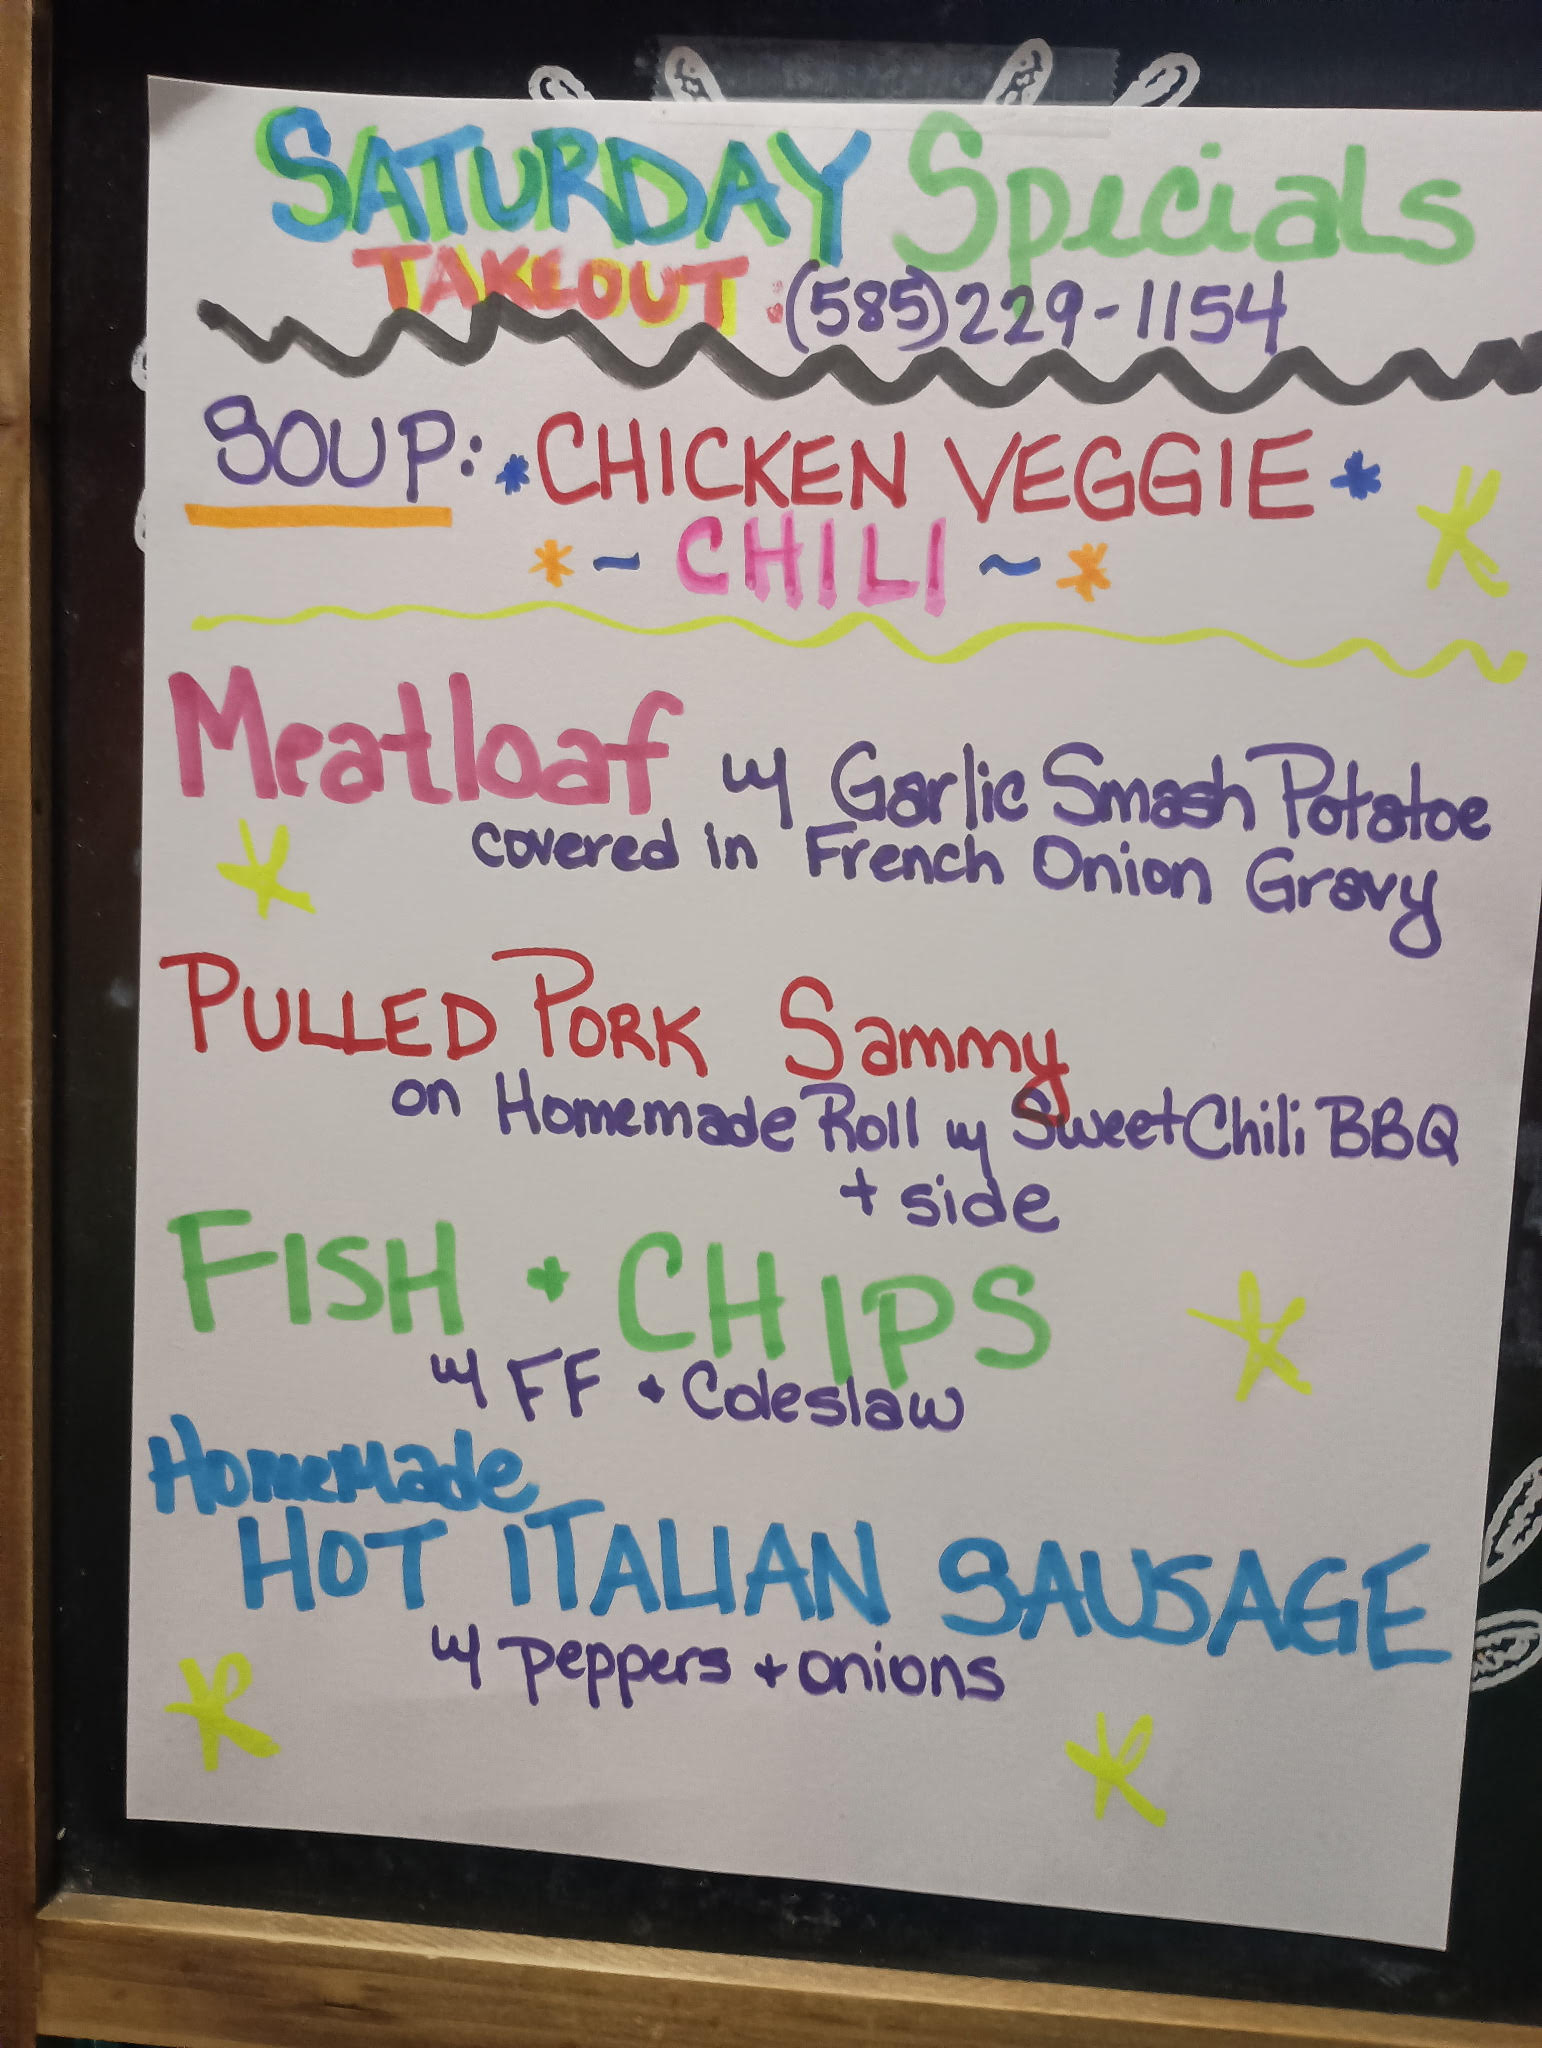 SATURDAY Specials
TAKEOUT: (585)229-1154
SOUP: *CHICKEN VEGGIE*
*~CHILI~*
Meatloaf w/ Garlic Smash Potatoe
covered in French Onion Gravy
PULLED PORK Sammy
on Homemade Roll w/ Sweet Chili BBQ
+ side
FISH + CHIPS
w/ FF + Coleslaw
Homemade
HOT ITALIAN SAUSAGE
w/ peppers + onions